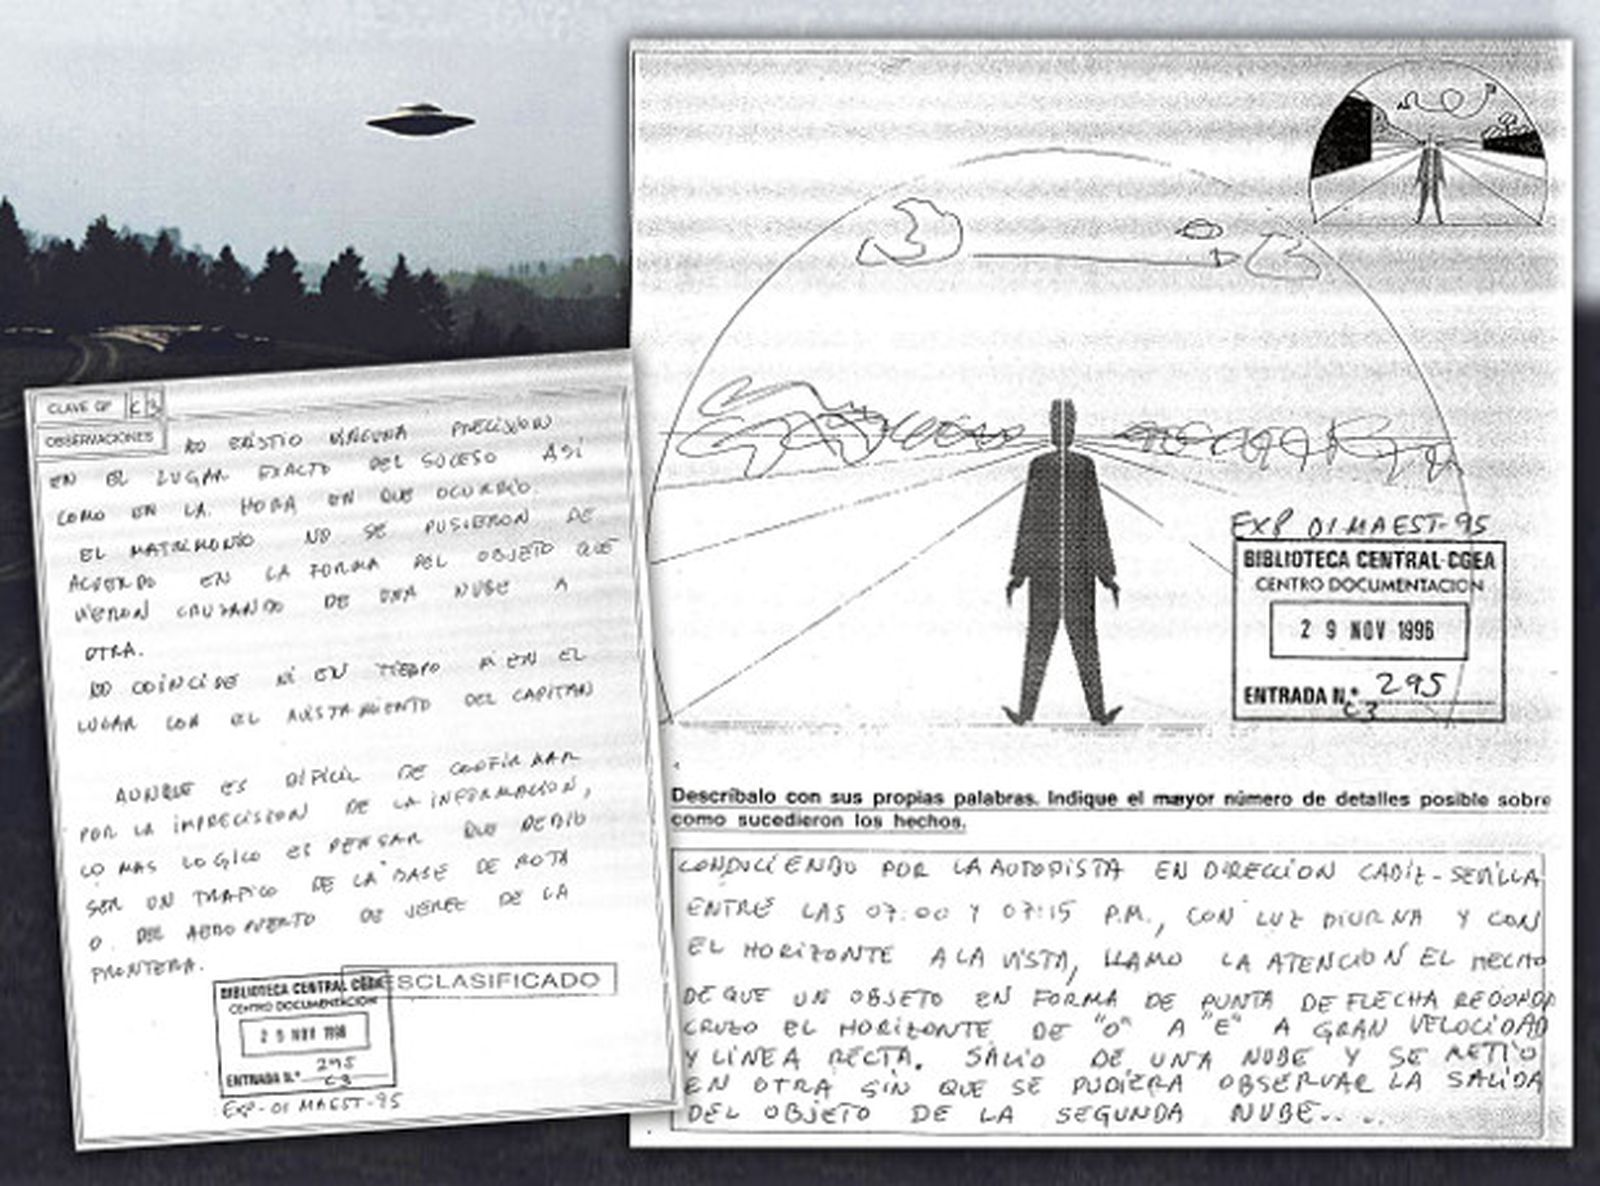 CLAVE OP C 3
OBSERVACIONES
NO EXISTIO NINGUNA PRECISION
EN EL LUGAR EXACTO DEL SUCESO ASI
COMO EN LA HORA EN QUE OCURRIO.
EL MATRIMONIO NO SE PUSIERON DE
ACUERDO EN LA FORMA DEL OBJETO QUE
VIERON CRUZANDO DE UNA NUBE A
OTRA.
NO COINCIDE NI EN TIEMPO NI EN EL
LUGAR CON EL AVISTAMIENTO DEL CAPITAN
AUNQUE ES DIFICIL DE CONFIRMAR
POR LA IMPRECISION DE LA INFORMACION,
LO MAS LOGICO ES PENSAR QUE DEBIO
SER UN TRAFICO DE LA BASE DE ROTA
O DEL AEROPUERTO DE JEREZ DE LA
FRONTERA.
DESCLASIFICADO
BIBLIOTECA CENTRAL CGEA
CENTRO DOCUMENTACION
2 9 NOV 1996
ENTRADA N.º 295
C3
EXP-01 MAEST-95
EXP 01 MAEST-95
BIBLIOTECA CENTRAL-CGEA
CENTRO DOCUMENTACION
2 9 NOV 1996
ENTRADA N.º 295
C3
Descríbalo con sus propias palabras. Indique el mayor número de detalles posible sobre
como sucedieron los hechos.
CONDUCIENDO POR LA AUTOPISTA EN DIRECCION CADIZ-SEVILLA
ENTRE LAS 07:00 Y 07:15 P.M., CON LUZ DIURNA Y CON
EL HORIZONTE A LA VISTA, LLAMO LA ATENCION EL HECHO
DE QUE UN OBJETO EN FORMA DE PUNTA DE FLECHA REDONDA
CRUZO EL HORIZONTE DE "O" A "E" A GRAN VELOCIDAD
Y LINEA RECTA. SALIO DE UNA NUBE Y SE METIO
EN OTRA SIN QUE SE PUDIERA OBSERVAR LA SALIDA
DEL OBJETO DE LA SEGUNDA NUBE.. ..